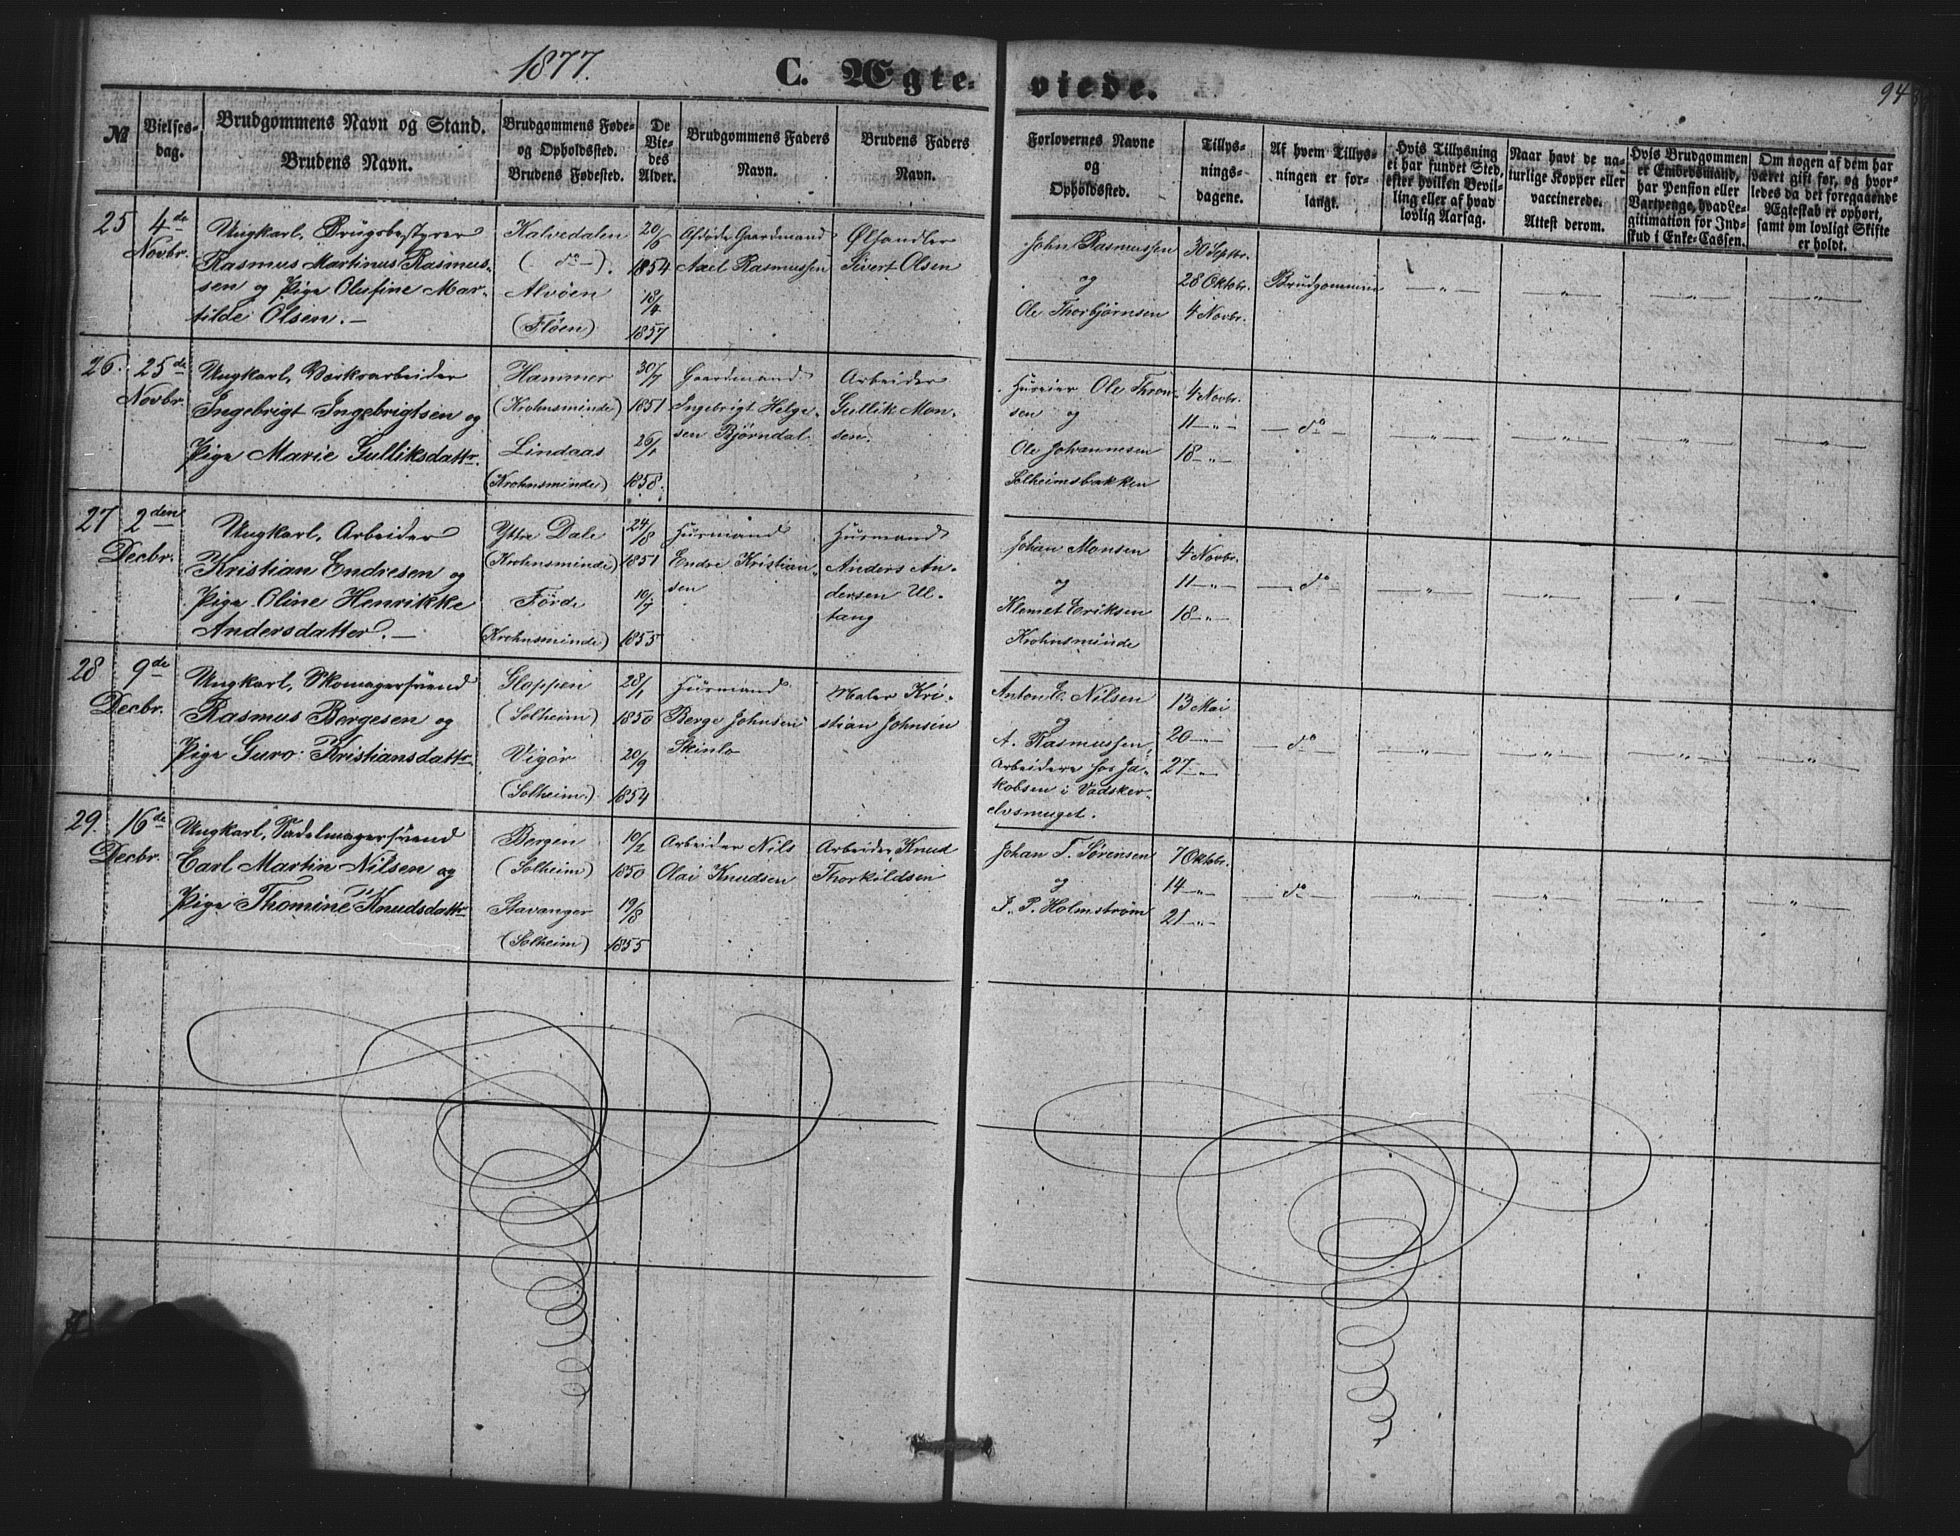 1877.
C. Ægte-
viede.
94
№
Vielses-
dag.
Brudgommens Navn og Stand.
Brudens Navn.
Brudgommens Føde-
og Opholdssted.
Brudens Fødested.
De
Vie-
des
Alder.
Brudgommens Faders
Navn.
Brudens Faders
Navn.
Forlovernes Navne
og
Opholdssted.
Tillys-
nings-
dagene.
Af hvem Tillys-
ningen er for-
langt.
Hvis Tillysning
ei har fundet Sted,
efter hvilken Bevil-
ling eller af hvad
lovlig Aarsag.
Naar havt de na-
turlige Kopper eller
vaccinerede.
Attest derom.
Hvis Brudgommen
er Embedsmand,
har Pension eller
Vartpenge, hvad Le-
gitimation for Ind-
skud i Enke-Cassen.
Om nogen af dem har
været gift før, og hvor-
ledes da det foregaaende
Ægteskab er ophørt,
samt om lovligt Skifte
er holdt.
25
4de
Novbr.
Ungkarl, Brugsbestyrer
Rasmus Martinus Rasmus-
sen og Pige Olufine Mar-
tilde Olsen.—
Kalvedalen
(— do —).
Alvøen
(Fløen)
20/6
1854
18/4
1857
Afdøde Gaardmand
Axel Rasmussen
Ølhandler
Sivert Olsen
John Rasmussen
og
Ole Thorbjørnsen
30 Septbr.
28 Oktbr.
4 Novbr.
Brudgommen
— „ —
— „ —
— „ —
— „ —
26.
25de
Novbr.
Ungkarl, Værksarbeider
Ingebrigt Ingebrigtsen og
Pige Marie Gulliksdattr.
Hammer
(Krohnsminde)
Lindaas
(Krohnsminde)
30/7
1851
26/1
1858.
Gaardmand
Ingebrigt Helge-
sen Bjørndal
Arbeider
Gullik Mon-
sen.
Huseier Ole Thron-
sen og
Ole Johannesen
Solheimsbakken
4 Novbr.
11 — „ —
18 — „ —
— do —
— „ —
— „ —
— „ —
— „ —
27
2den
Decbr.
Ungkarl, Arbeider
Kristian Endresen og
Pige Oline Henrikke
Andersdatter.—
Yttre Dale
(Krohnsminde)
Førde
(Krohnsminde)
24/8
1851
10/7
1855
Husmand
Endre Kristian-
sen
Husmand
Anders An-
dersen Ul-
tang
Johan Monsen
og
Klemet Eriksen
Krohnsminde
4 Novbr.
11 — „ —
18 — „ —
— do —
— „ —
— „ —
— „ —
— „ —
28
9de
Decbr.
Ungkarl, Skomagersvend
Rasmus Bergesen og
Pige Guro Kristiansdattr.
Gloppen
(Solheim)
Vigør
(Solheim.)
28/1
1850
20/9
1854
Husmand
Berge Johnsen
Skinlo
Maler Kri-
stian Johnsen
Anton E. Nilsen
og
A. Rasmussen,
Arbeidere hos Ja-
kobsen i Vadsker-
elvsmuget.
13 Mai
20 — „ —
27 — „ —
— do —
— „ —
— „ —
— „ —
— „ —
29.
16de
Decbr.
Ungkarl, Sadelmagersvend
Carl Martin Nilsen og
Pige Thomine Knudsdattr
Bergen
(Solheim)
Stavanger
(Solheim)
10/2
1850
19/8
1855
Arbeider Nils
Olai Knudsen
Arbeider Knud
Thorkildsen
Johan T. Sørensen
og
J. P. Holmstrøm
7 Oktbr.
14 — „ —
21 — „ —
— do —
— „ —
— „ —
— „ —
— „ —